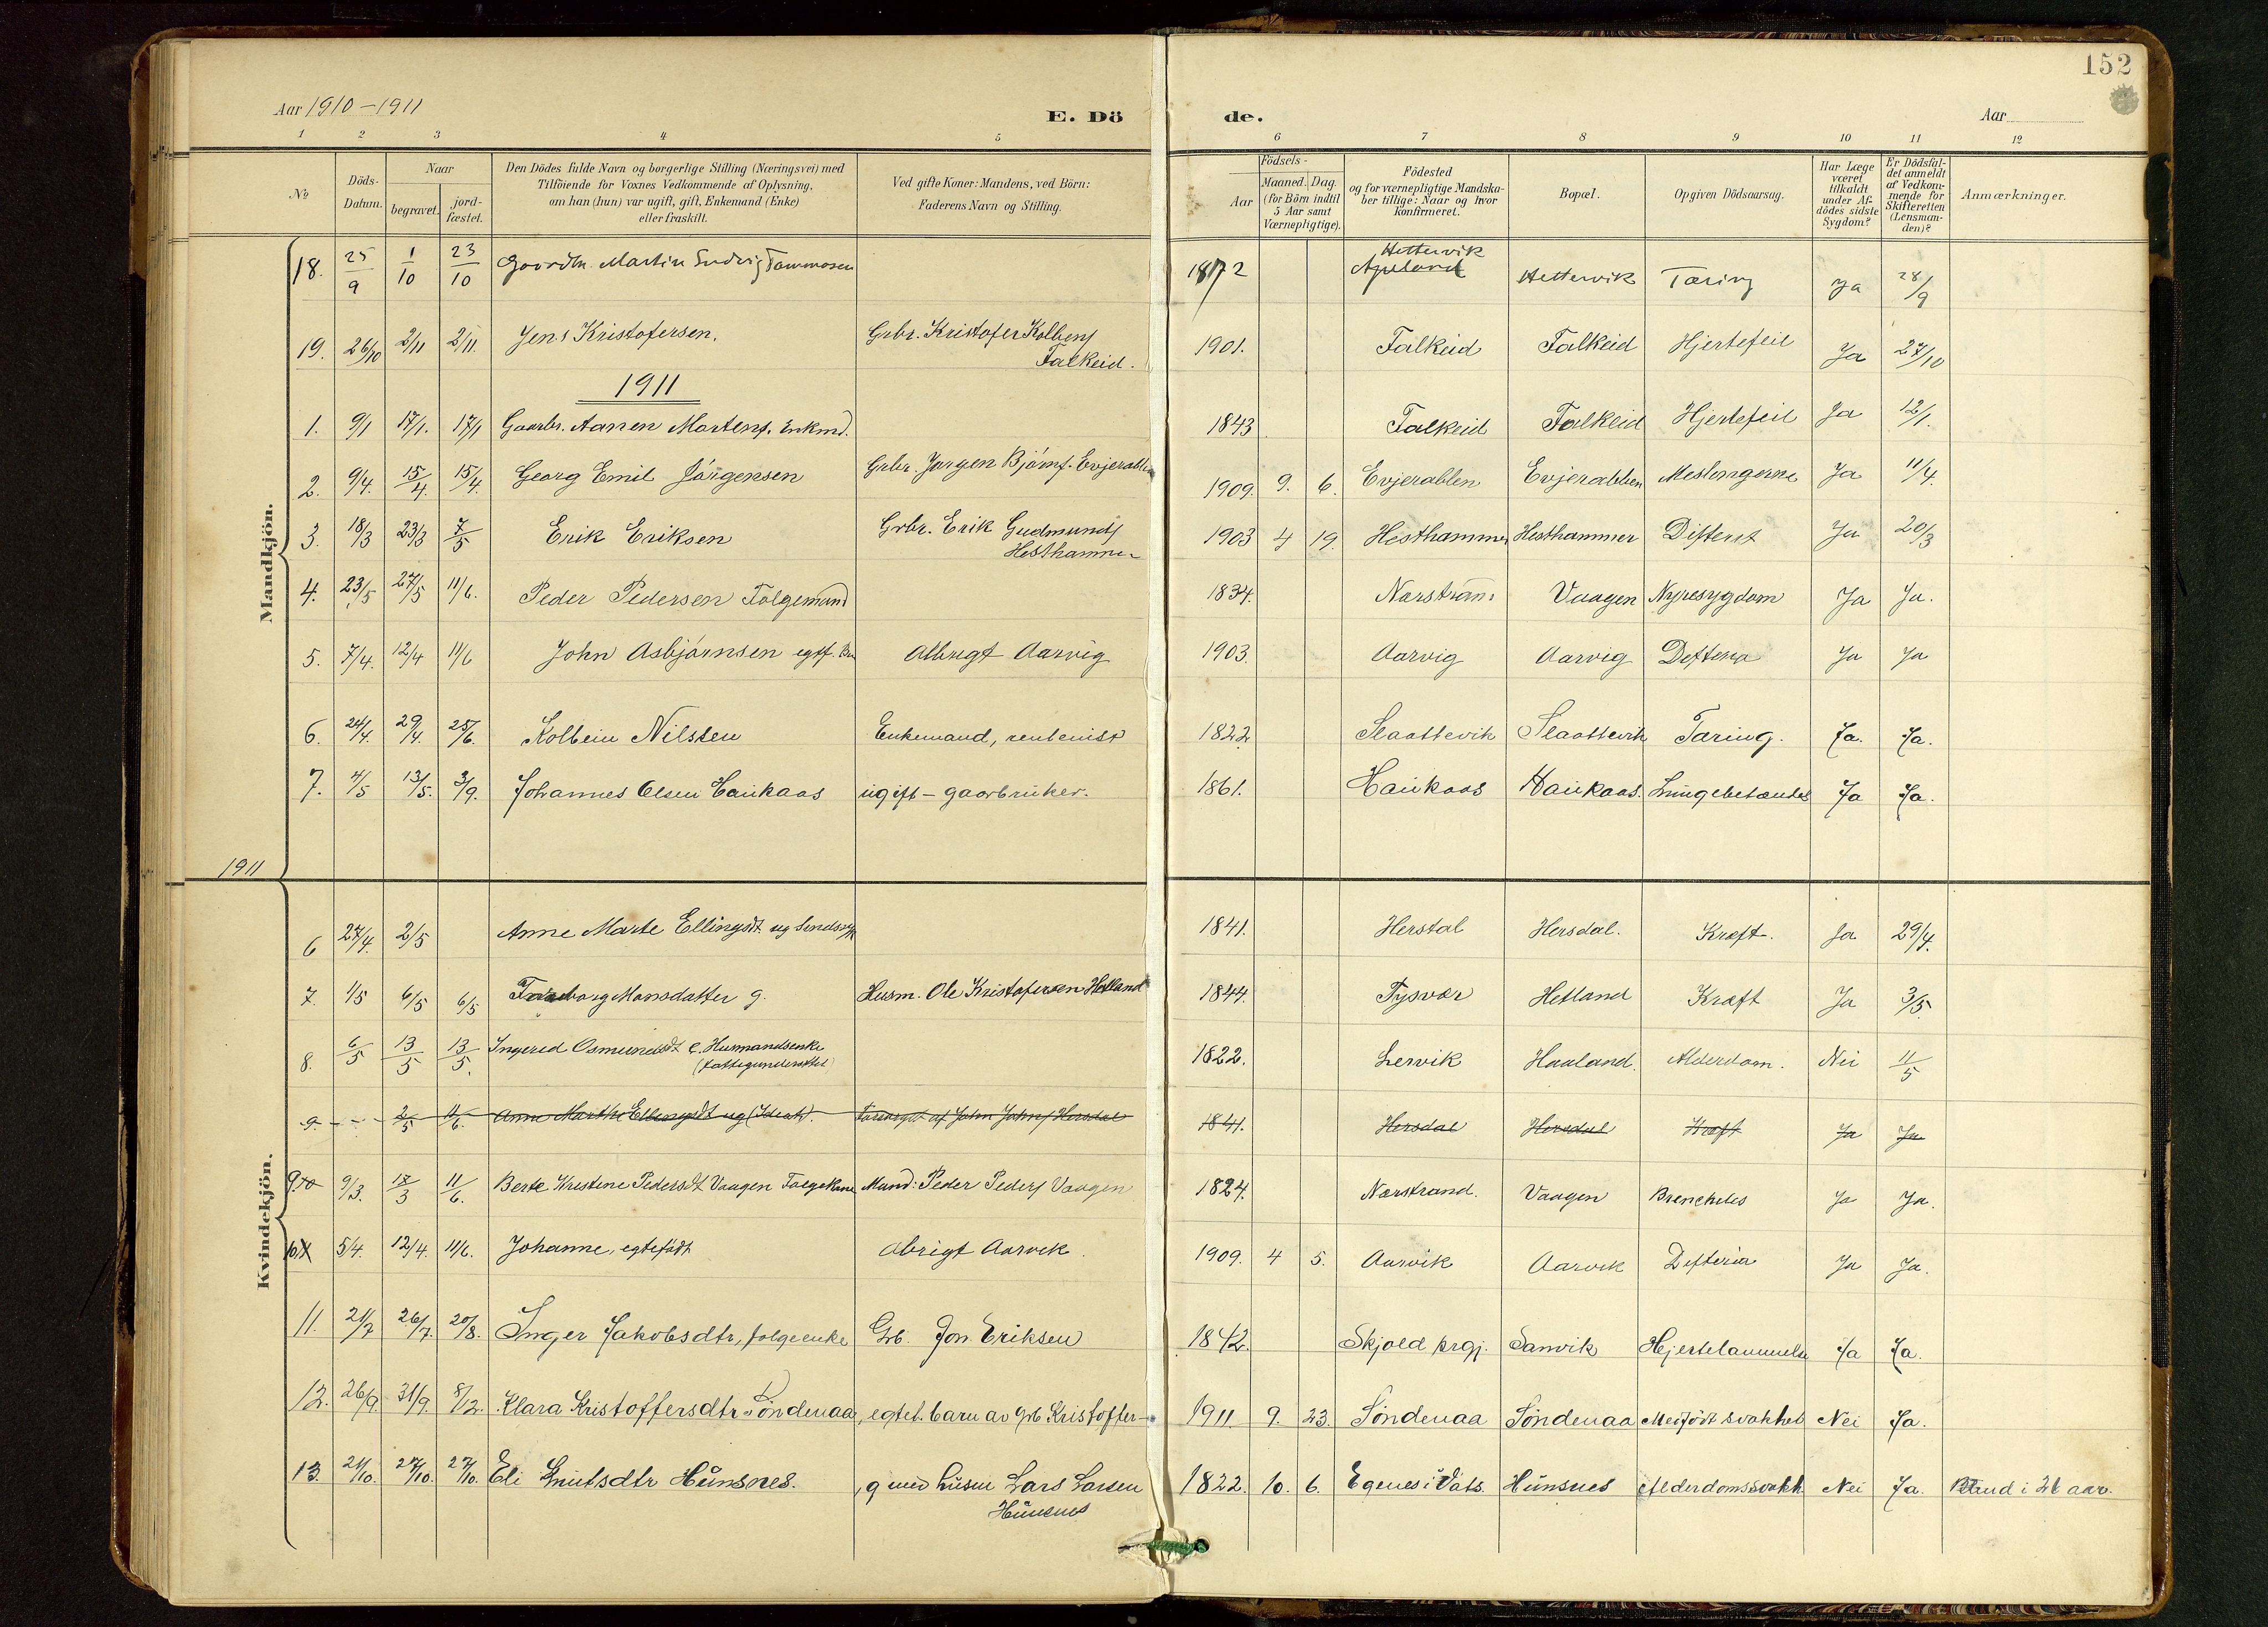 152
Aar 1910-1911
E. Dö de.
Aar
1 2 3 4 5 6 7 8 9 10 11 12
No
Döds-Datum.
Naar
begravet.
jord-fæstet.
Den Dödes fulde Navn og borgerlige Stilling (Næringsvei) med
Tilföiende for Voxnes Vedkommende af Oplysning,
om han (hun) var ugift, gift, Enkemand (Enke)
eller fraskilt.
Ved gifte Koner: Mandens, ved Börn:
Faderens Navn og Stilling.
Födsels-
Aar
Maaned. Dag
(for Börn indtil
5 Aar samt
Værnepligtige).
Födested
og for værnepligtige Mandska-
ber tillige: Naar og hvor
Konfirmeret.
Bopæl.
Opgiven Dödsaarsag.
Har Læge
været
tilkaldt
under Af-
dödes sidste
Sygdom?
Er Dödsfal-
det anmeldt
af Vedkom-
mende for
Skifteretten
(Lensman-
den)?
Anmærkninger.
Mandkjön.
18. 25/9 1/10 23/10 Martin 1872 Hettervik Hettervik Tæring Ja 28/9
19. 26/10 2/11 2/11. Jens Kristofersen. Grbr. Kristofer Kolbens Falkeid. 1901. Falkeid Falkeid Hjertefeil Ja 27/10
1911
1. 9/1 17/1. 17/1 Gaarbr. Aanen Martens. Enkmd. 1843 Falkeid Falkeid Hjertefeil Ja 12/1.
2. 9/4. 15/4. 15/4. Georg Emil Jörgensen Grbr. Jørgen Bjørns. 1909. 9. 6. Evjerablen Evjerabben Meslingerne Ja 11/4.
3. 18/3 23/3 7/5 Erik Eriksen Grbr. Erik Gudmunds Hesthammer 1903 4 19. Hesthammer Hesthammer Difterit Ja 20/3
4. 23/5 27/5 11/6. Peder Pedersen Folgemand 1834. Narstran Vaagen Nyresygdom Ja Ja.
5. 7/4. 12/4 11/6 John Asbjørnsen egtf. Albrigt Aarvig 1903. Aarvig Aarvig Defteria Ja Ja
6. 24/4. 29/4. 25/6. Kolbein Nilssen Enkemand, rentenist 1822 Slaattevik Slaattevik Tæring. Ja. Ja.
7. 4/5 13/5. 3/9. Johannes Olsen Haukaas ugift - gaarbruker. 1861. Haukaas Haukaas. Lungebetændel Ja Ja.
1911
Kvindekjön.
6 27/4. 2/5 Anne Marte Ellingsdt. ug 1841. Herstal Hersdal. Kræft. Ja 29/4.
7. 1/5 6/5 6/5 Mansdatter g. Husm. Ole Kristofersen Hetland 1844. Tysvær Hetland Kræft Ja 3/5.
8. 6/5 13/5 13/5. Ingered Osmundsdt e. Husmandsenke 1822. Lervik Haaland. Alderdom. Nei 11/5
9. - - - 2/5 11/6. Anne Marthe Ellingsdt ug (Idiot). Forsørget af John Johns Hersdal 1841. Hersdal Hersdal Kræft Ja Ja
9. 10 9/3. 17/3 11/6. Berte Kristine Pedersdt Vaagen Folgekone Mand: Peder Peders Vaagen 1824. Nærstrand. Vaagen Ja Ja.
10. 5/4. 12/4. 11/6. Johanne, egtefødt Abrigt Aarvik. 1909. 4 5. Aarvik Aarvik Defteria Ja Ja.
11. 21/7 26/7. 20/8. Inger Jakobsdtr, folgeenke Grb. Jon Eriksen 1842. Skjold prgj. Sanvik Hjertelammelse Ja Ja.
12. 26/9. 31/9. 8/12. Klara Kristoffersdtr Söndenaa, egtef. barn av grb Kristoffer 1911. 9. 23. Söndenaa Söndenaa Medfödt svakhet Nei Ja.
13. 21/10. 27/10. 27/10. Eli Knutsdtr Hunsnes. g med husm Lars Larsen Hunsnes 1822. 10. 6. Egenes i Vats. Hunsnes Alderdomssvakh Nei Ja. Blind i 26 aar.